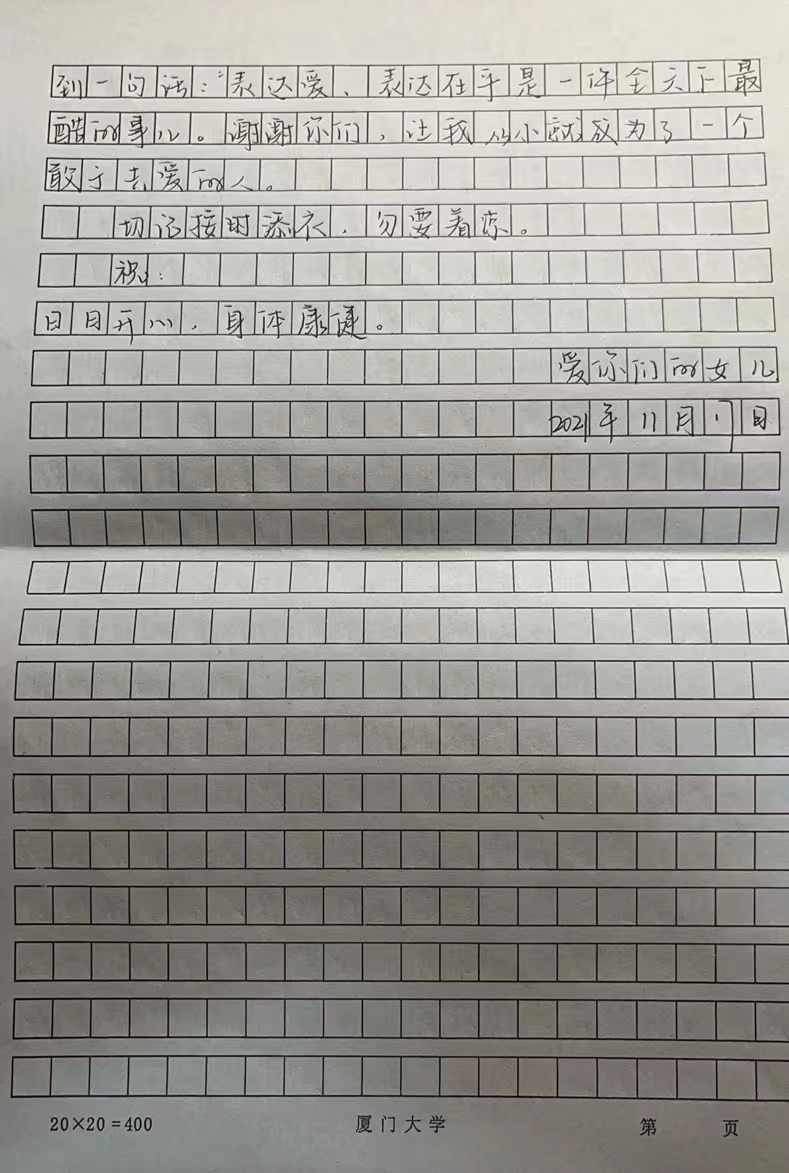 到一句话：“表达爱、表达在乎是一件全天下最
酷的事儿。谢谢你们，让我从小就成为了一个
敢于去爱的人。
切记按时添衣，勿要着凉。
祝：
日日开心，身体康健。
爱你们的女儿
2021年11月17日
20×20=400 厦门大学 第 页